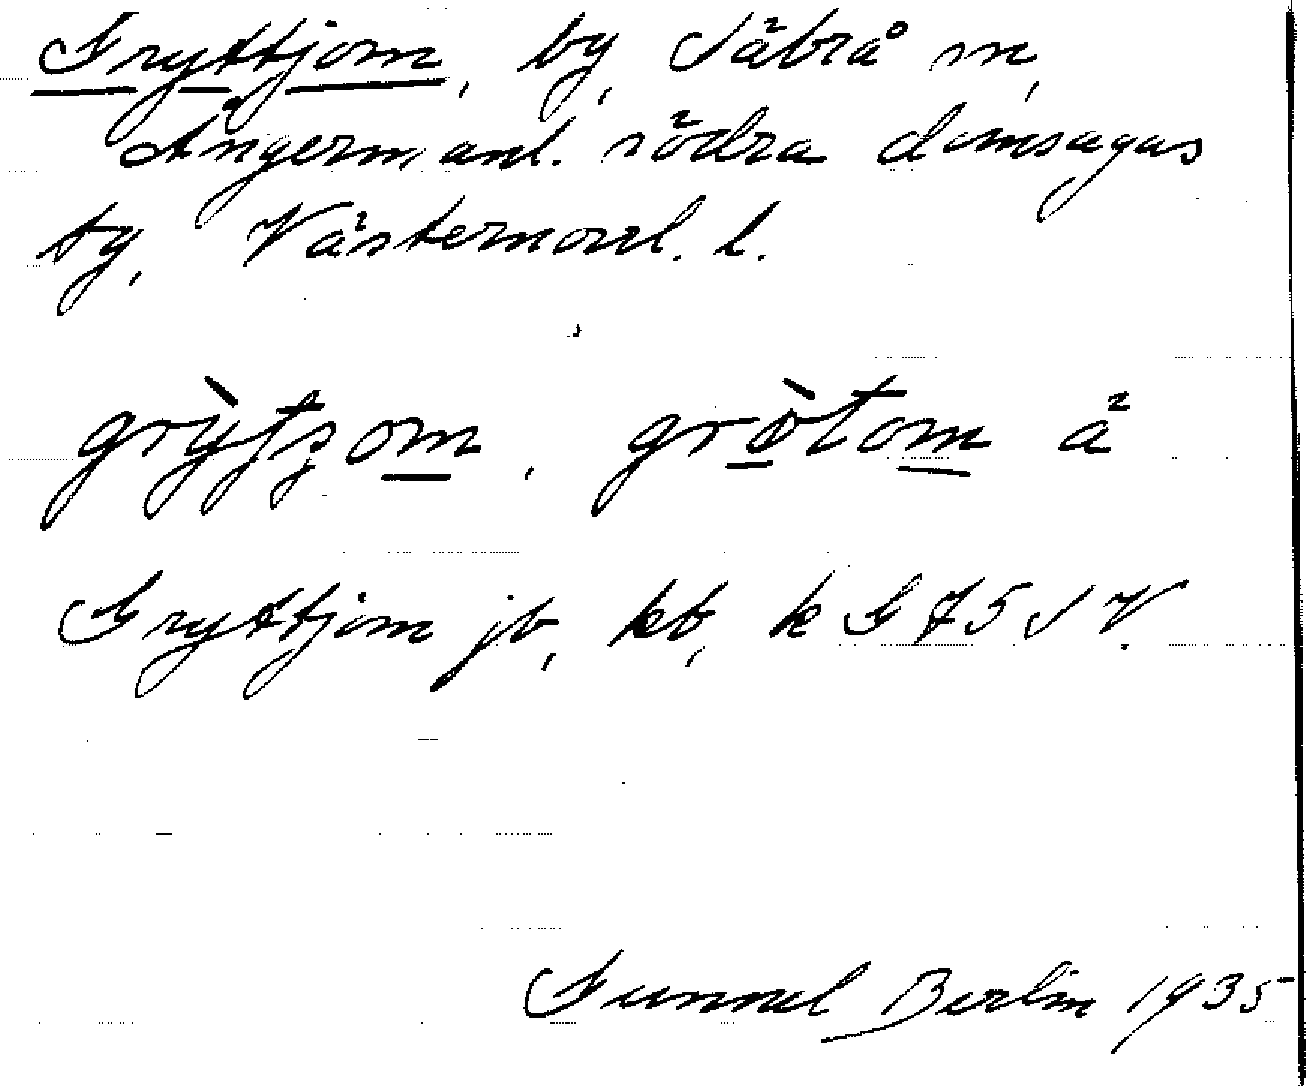 Gryttjom, by, Säbrå sn,
Ångermanl. södra domsagas
tg, Västernorrl. l.
grỳtʒom, gròtom ä
Gryttjom jb, kb, k G 75 S V.
Gunnel Berlin 1935